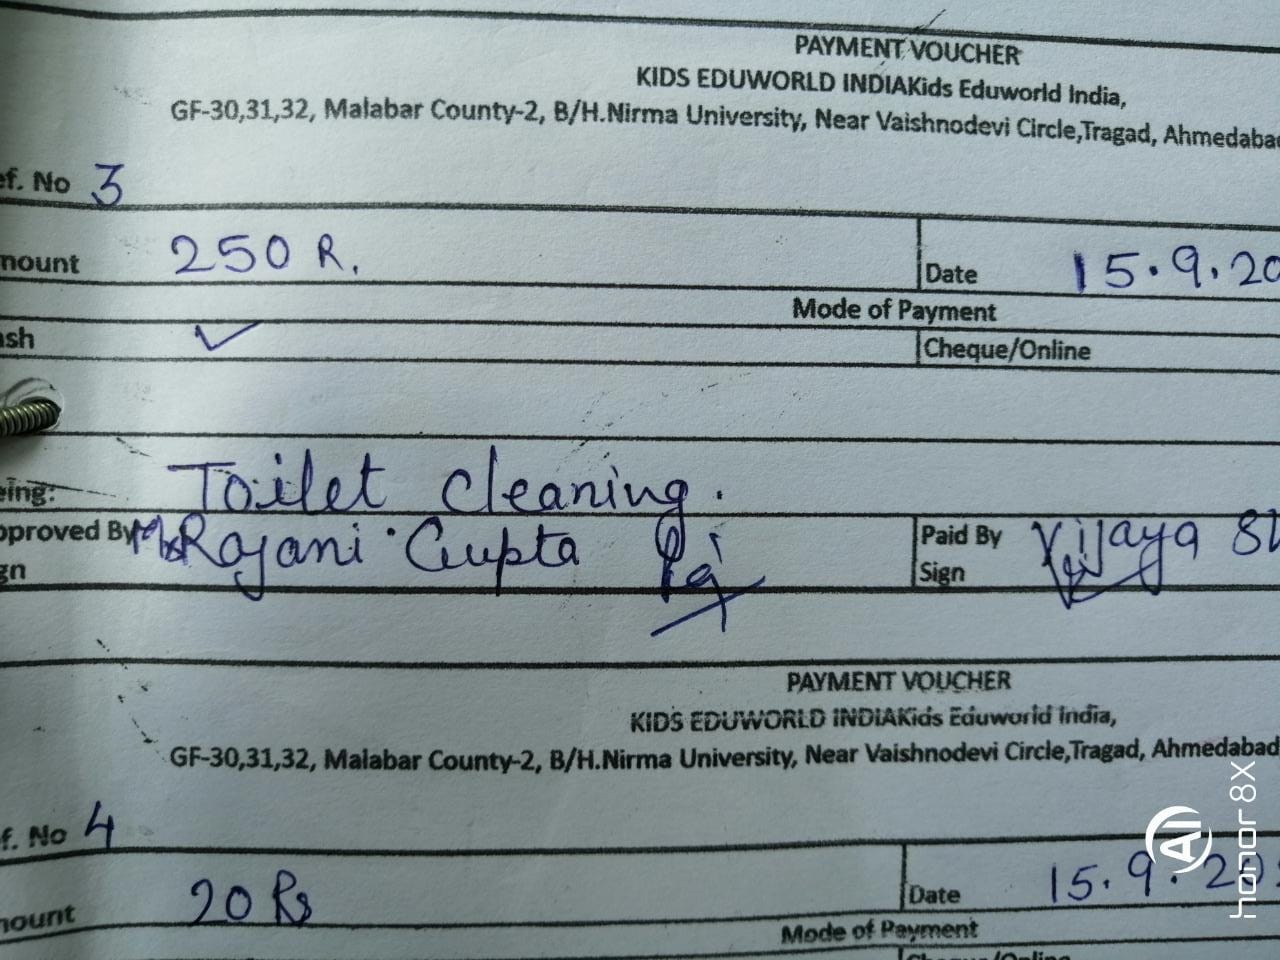 PAYMENT VOUCHER
KIDS EDUWORLD INDIAKids Eduworld India,
GF-30,31,32, Malabar County-2, B/H.Nirma University, Near Vaishnodevi Circle,Tragad, Ahmedaba
ef. No 3
mount 250 R. Date 15.9.20
Mode of Payment
ash ✓ Cheque/Online
eing: Toilet cleaning.
pproved By Rajani Gupta Paid By Vijaya
gn Sign
PAYMENT VOUCHER
KIDS EDUWORLD INDIAKids Eduworld India,
GF-30,31,32, Malabar County-2, B/H.Nirma University, Near Vaishnodevi Circle,Tragad, Ahmedabad
f. No 4
mount 20 Rs Date 15.9.20
Mode of Payment
Cheque/Online
AI honor 8X